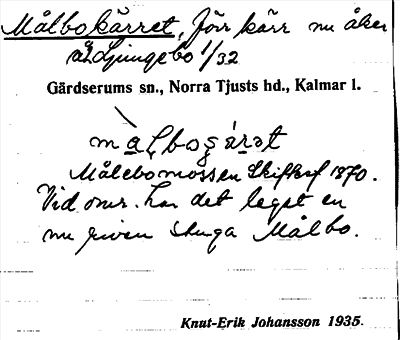 Målbokärret, förr kärr nu åker
å Ljungebo 1/32
Gärdserums sn., Norra Tjusts hd., Kalmar l.
målbogárət
Målebomossen Skifteskf 1870.
Vid omr. har det legat en
nu riven stuga Målbo.
Knut-Erik Johansson 1935.